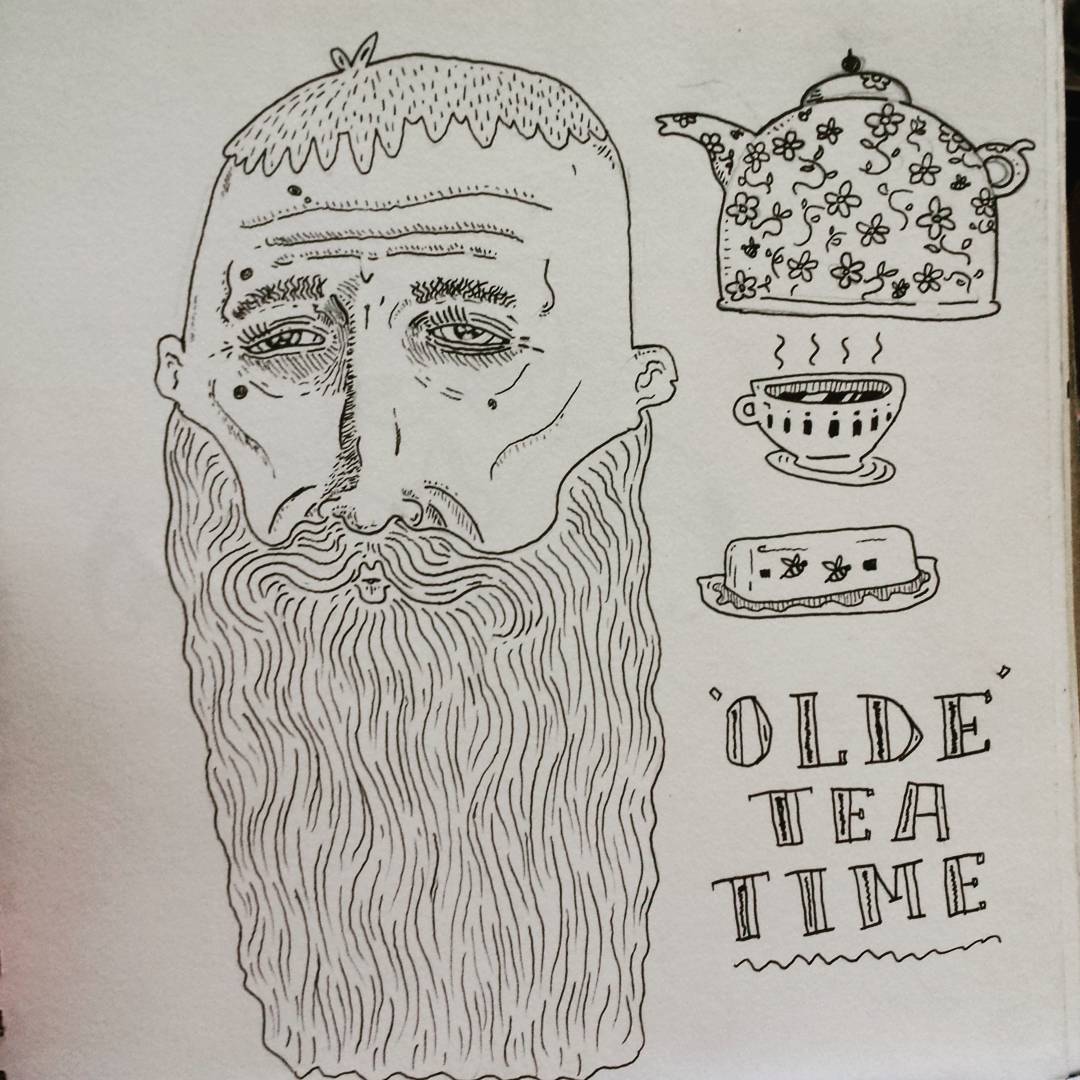 'OLDE'
TEA
TIME